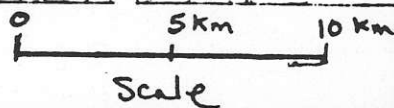 0 5 Km 10 Km
Scale